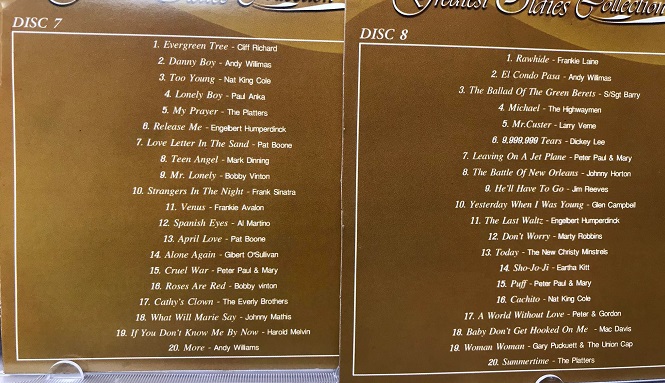 Oldies Collection
DISC 7
1. Evergreen Tree - Cliff Richard
2. Danny Boy - Andy Willimas
3. Too Young - Nat King Cole
4. Lonely Boy - Paul Anka
5. My Prayer - The Platters
6. Release Me - Engelbert Humperdinck
7. Love Letter In The Sand - Pat Boone
8. Teen Angel - Mark Dinning
9. Mr. Lonely - Bobby Vinton
10. Strangers In The Night - Frank Sinatra
11. Venus - Frankie Avalon
12. Spanish Eyes - Al Martino
13. April Love - Pat Boone
14. Alone Again - Gibert O'Sullivan
15. Cruel War - Peter Paul & Mary
16. Roses Are Red - Bobby vinton
17. Cathy's Clown - The Everly Brothers
18. What Will Marie Say - Johnny Mathis
19. If You Don't Know Me By Now - Harold Melvin
20. More - Andy Williams
Greatest Oldies Collection
DISC 8
1. Rawhide - Frankie Laine
2. El Condo Pasa - Andy Willmas
3. The Ballad Of The Green Berets - S/Sgt Barry
4. Michael - The Highwaymen
5. Mr.Custer - Larry Verne
6. 9,999,999 Tears - Dickey Lee
7. Leaving On A Jet Plane - Peter Paul & Mary
8. The Battle Of New Orleans - Johnny Horton
9. He'll Have To Go - Jim Reeves
10. Yesterday When I Was Young - Glen Campbell
11. The Last Waltz - Engelbert Humperdinck
12. Don't Worry - Marty Robbins
13. Today - The New Christy Minstrels
14. Sho-Jo-Ji - Eartha Kitt
15. Puff - Peter Paul & Mary
16. Cachito - Nat King Cole
17. A World Without Love - Peter & Gordon
18. Baby Don't Get Hooked On Me - Mac Davis
19. Woman Woman - Gary Puckuett & The Union Cap
20. Summertime - The Platters